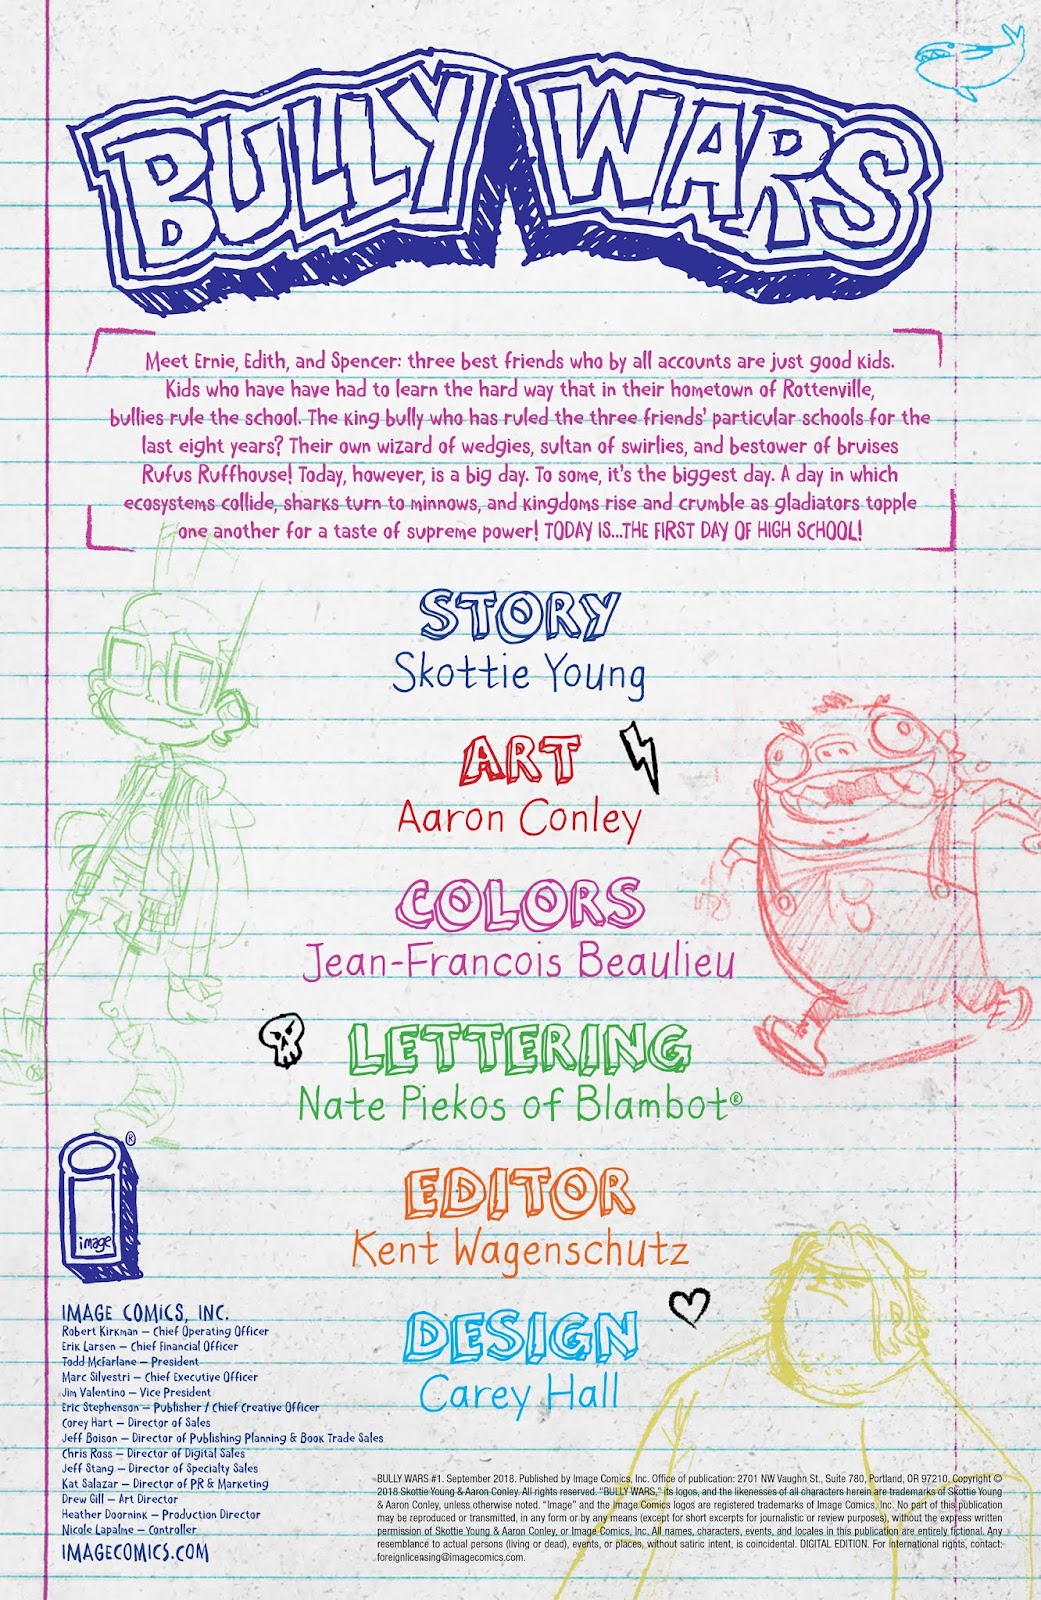 BULLY WARS
Meet Ernie, Edith, and Spencer: three best friends who by all accounts are just good kids.
Kids who have have had to learn the hard way that in their hometown of Rottenville,
bullies rule the school. The king bully who has ruled the three friends' particular schools for the
last eight years? Their own wizard of wedgies, sultan of swirlies, and bestower of bruises
Rufus Ruffhouse! Today, however, is a big day. To some, it's the biggest day. A day in which
ecosystems collide, sharks turn to minnows, and kingdoms rise and crumble as gladiators topple
one another for a taste of supreme power! TODAY IS...THE FIRST DAY OF HIGH SCHOOL!
STORY
Skottie Young
ART
Aaron Conley
COLORS
Jean-Francois Beaulieu
LETTERING
Nate Piekos of Blambot®
EDITOR
Kent Wagenschutz
DESIGN
Carey Hall
®
image
IMAGE COMICS, INC.
Robert Kirkman — Chief Operating Officer
Erik Larsen — Chief Financial Officer
Todd McFarlane — President
Marc Silvestri — Chief Executive Officer
Jim Valentino — Vice President
Eric Stephenson — Publisher / Chief Creative Officer
Corey Hart — Director of Sales
Jeff Boison — Director of Publishing Planning & Book Trade Sales
Chris Ross — Director of Digital Sales
Jeff Stang — Director of Specialty Sales
Kat Salazar — Director of PR & Marketing
Drew Gill — Art Director
Heather Doornink — Production Director
Nicole Lapalme — Controller
IMAGECOMICS.COM
BULLY WARS #1. September 2018. Published by Image Comics, Inc. Office of publication: 2701 NW Vaughn St., Suite 780, Portland, OR 97210. Copyright ©
2018 Skottie Young & Aaron Conley. All rights reserved. "BULLY WARS," its logos, and the likenesses of all characters herein are trademarks of Skottie Young
& Aaron Conley, unless otherwise noted. "Image" and the Image Comics logos are registered trademarks of Image Comics, Inc. No part of this publication
may be reproduced or transmitted, in any form or by any means (except for short excerpts for journalistic or review purposes), without the express written
permission of Skottie Young & Aaron Conley, or Image Comics, Inc. All names, characters, events, and locales in this publication are entirely fictional. Any
resemblance to actual persons (living or dead), events, or places, without satiric intent, is coincidental. DIGITAL EDITION. For international rights, contact:
foreignlicensing@imagecomics.com.